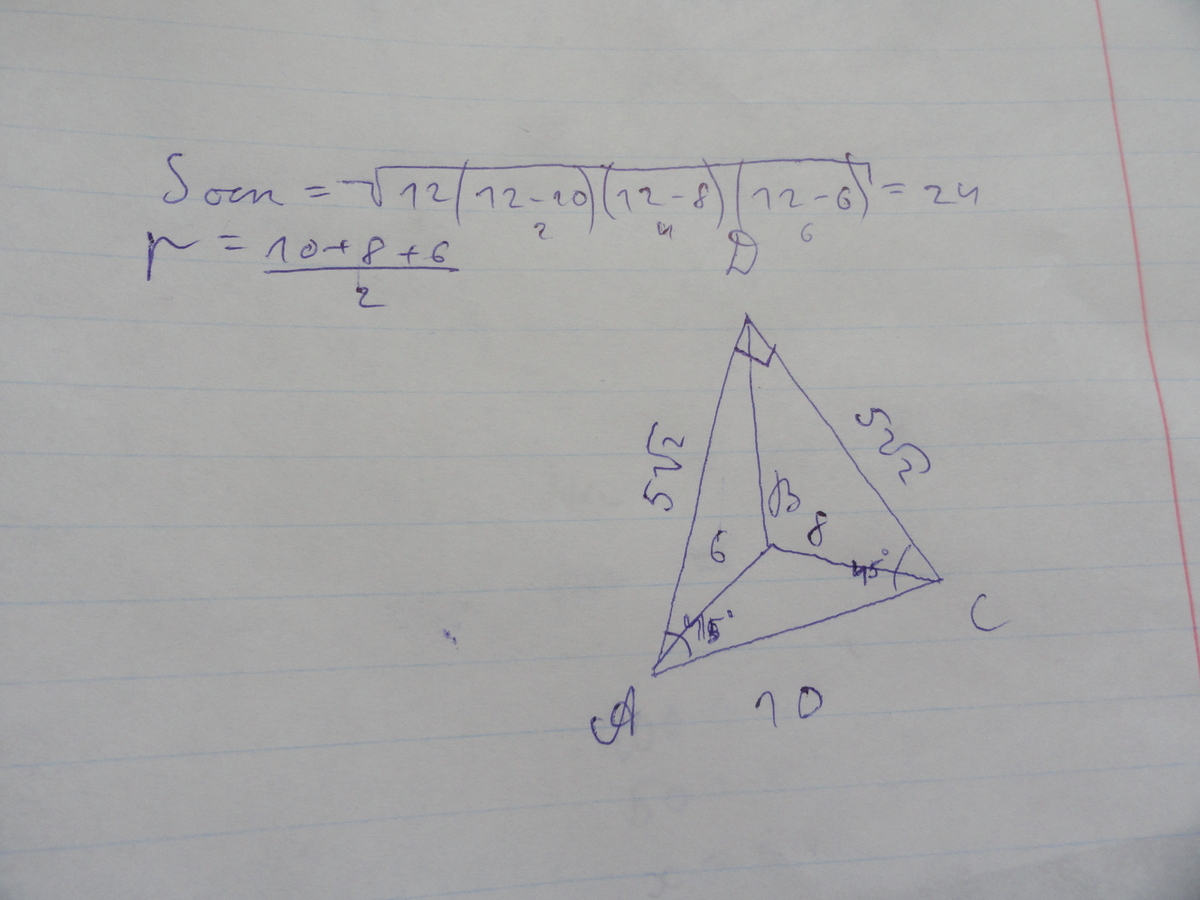 Sосн = √12(12-10)(12-8)(12-6) = 24
2 4 6
p = 10+8+6
2
D
5√2 5√2
B
6 8
45°
45°
C
A 10